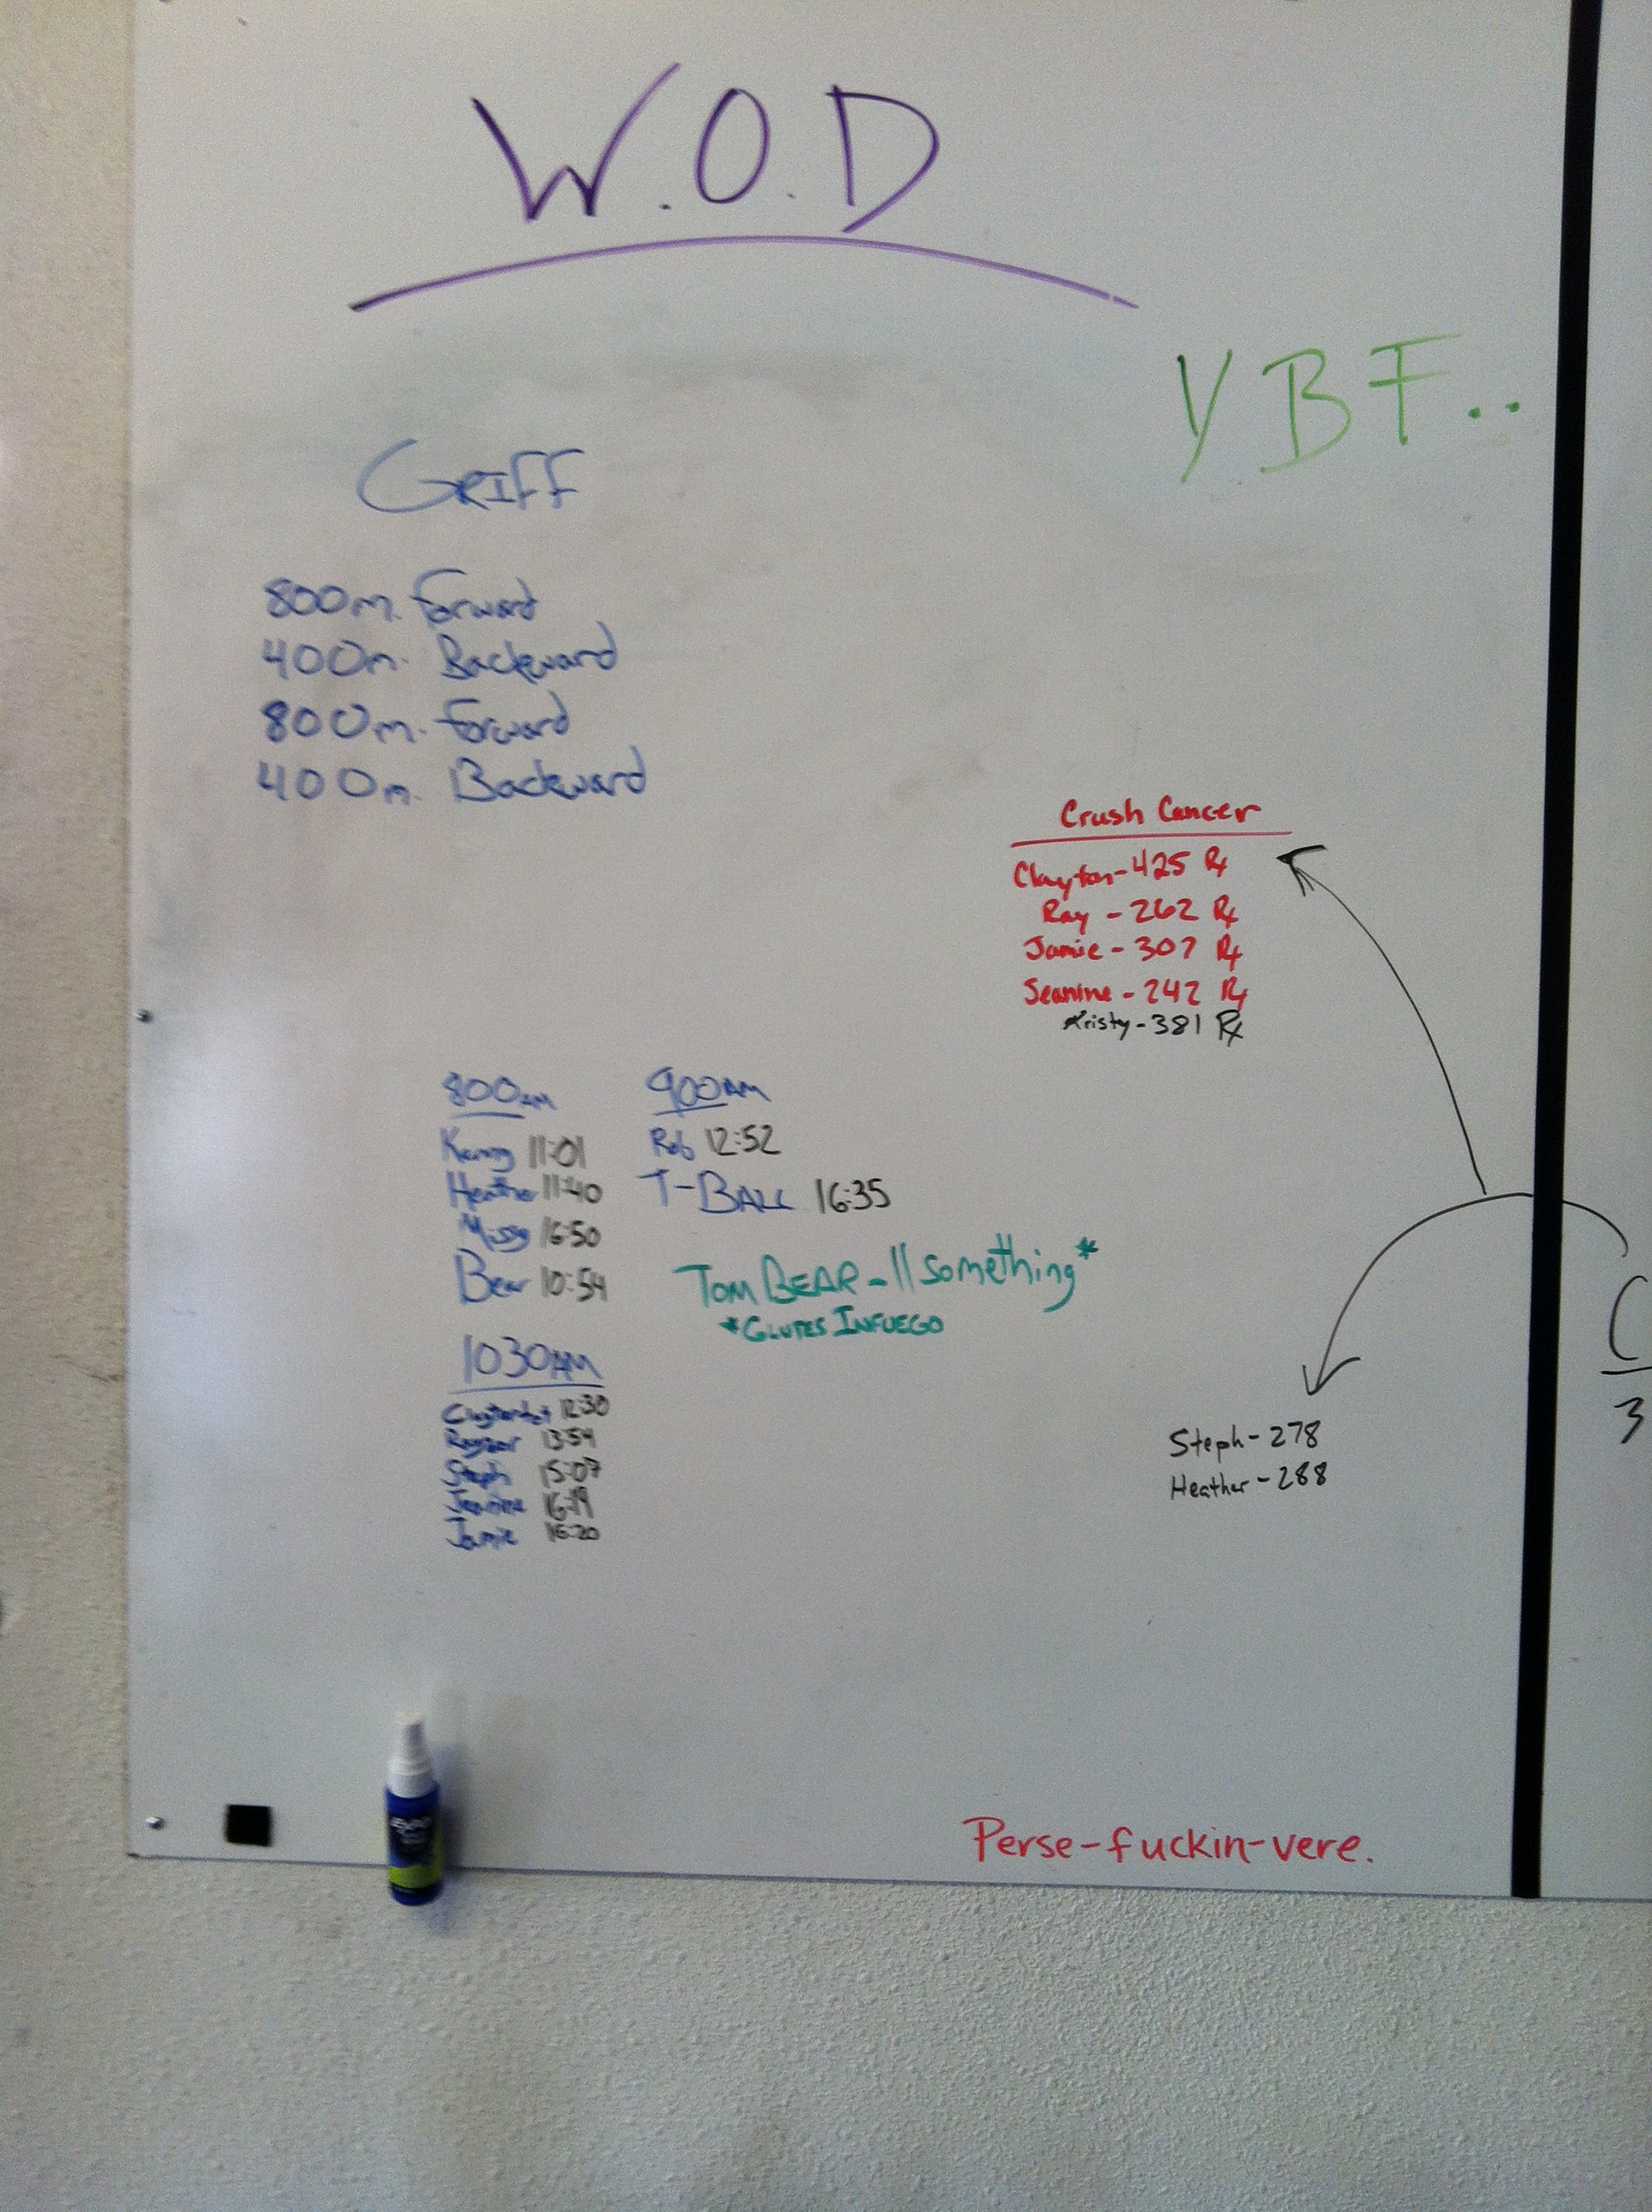 W.O.D
YBF..
GRIFF
800m. Forward
400m. Backward
800m. Forward
400m. Backward
Crush Cancer
Clayton-425 Rx
Ray - 262 Rx
Jamie - 307 Rx
Jeanine - 242 Rx
Kristy-381 Rx
800AM
Kenny 11:01
Heather 11:40
Missy 16:50
Bear 10:54
900AM
Rob 12:52
T-BALL 16:35
TOM BEAR - 11 something*
*GLUTES INFUEGO
1030AM
12:30
13:54
Steph 15:07
Jeanine 16:19
Jamie 16:20
Steph-278
Heather-288
C
3
Perse-fuckin-vere.
EXPO